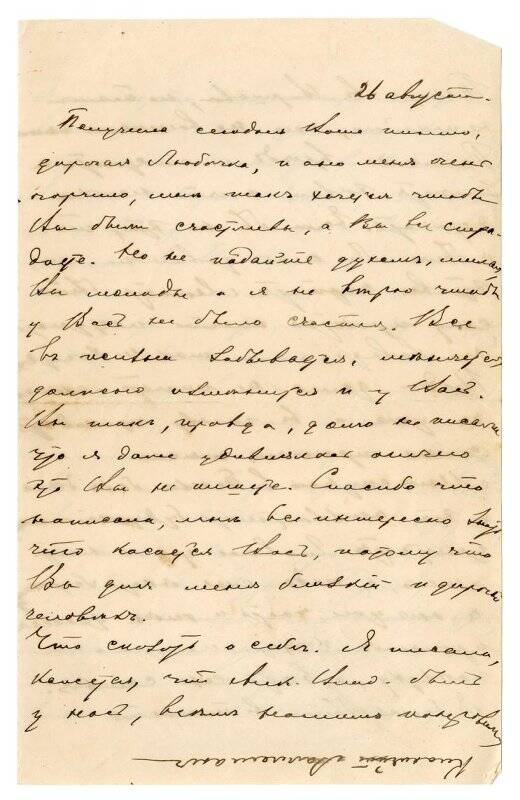 26 августа.
Получила сегодня Ваше письмо,
дорогая Любочка, и оно меня очень
огорчило, мнѣ такъ хочется чтобы
Вы были счастливы, а Вы все стра-
даете. Но не падайте духомъ, милая,
Вы молоды а я не вѣрю чтобы
у Васъ не было счастья. Все
въ жизни забывается, мѣняется,
должно измѣнится и у Васъ.
Вы такъ, правда, долго не писали
что я даже удивлялась отчего
это Вы не пишете. Спасибо что
написали, мнѣ все интересно знать
что касается Васъ, потому что
Вы для меня близкій и дорогой
человѣкъ.
Что сказать о себѣ. Я писала,
кажется, что Влад. былъ
у насъ, всѣмъ нашимъ понравился